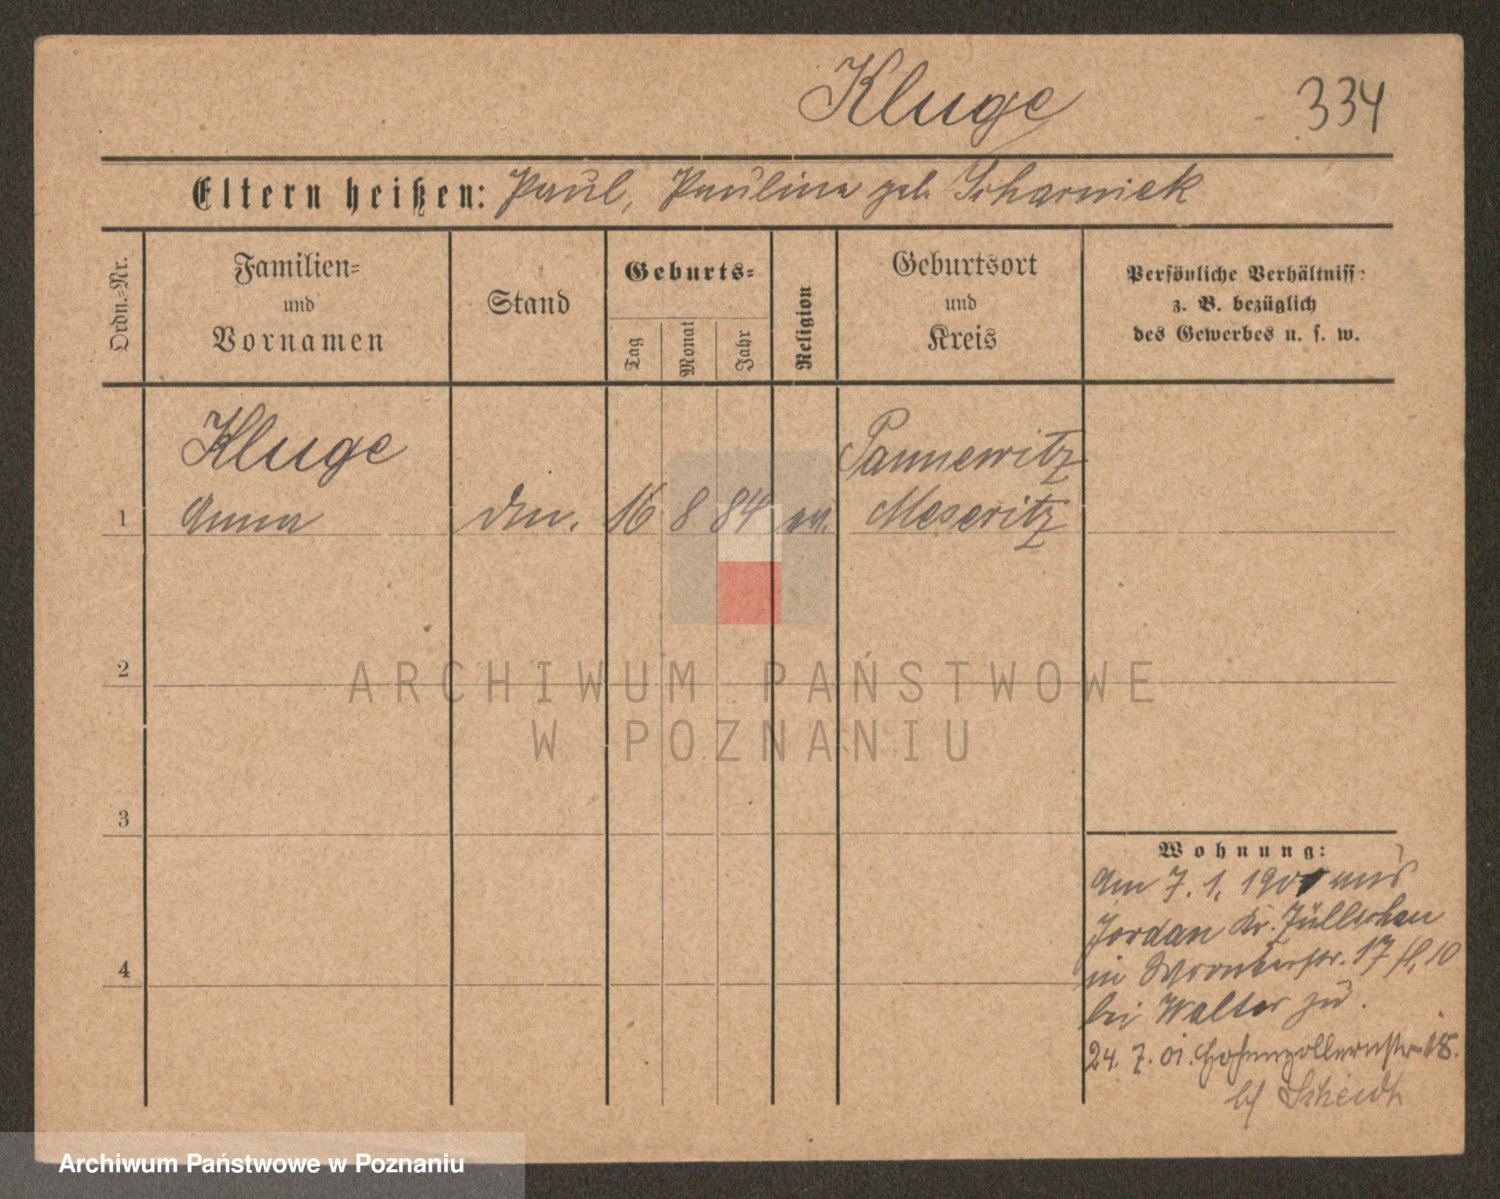 Kluge 334
Eltern heißen: Paul, Paulina geb. Scharniek
Ordn.=Nr.
Familien=
und
Vornamen
Stand
Geburts=
Tag
Monat
Jahr
Religion
Geburtsort
und
Kreis
Persönliche Verhältniss:
z. B. bezüglich
des Gewerbes u. s. w.
Kluge Pannewitz
1 Anna 16 8 84 ev. Meseritz
2
ARCHIWUM PAŃSTWOWE
W POZNANIU
3
Wohnung:
Am 7. 1. 1901 aus
Jordan Kr. Züllichau
in 17 10
bei Walter zu.
24. 7. 01. Hohenzollernstr 18.
b/ Scheidt
4
Archiwum Państwowe w Poznaniu